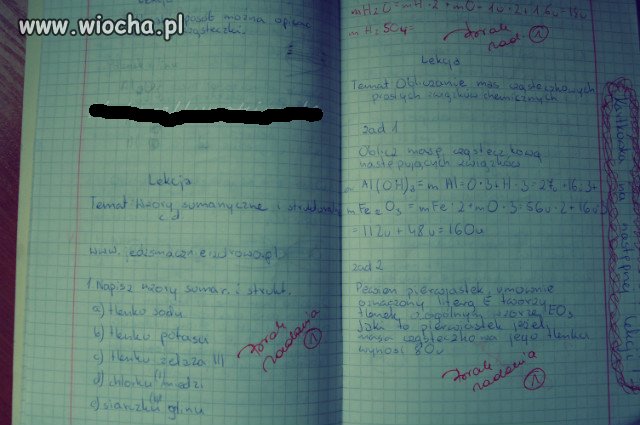 www.wiocha.pl
sposób można opisać
cząsteczki.
Lekcja
Temat: Wzory sumaryczne i strukturalne
cd
www. jedzsmaczniezdrowo.pl
1 Napisz wzory sumar. i strukt.
a) tlenku sodu
b) tlenku potasu
c) tlenku żelaza III
d) chlorku miedzi
e) siarczku glinu
brak
zadania
1
mH2O = mH · 2 + mO = 1u · 2 + 16u = 18u
mH2SO4=
brak
zad. 1
Lekcja
Temat: Obliczanie mas cząsteczkowych
prostych związków chemicznych
zad 1
Oblicz masę cząsteczkową
następujących związków
mAl(OH)3 = mAl = O · 3 + H · 3 = 27u + 16 · 3 +
mFe2O3 = mFe · 2 + mO · 3 = 56u · 2 + 16u
= 112u + 48u = 160u
zad 2
Pewien pierwiastek, umownie
oznaczony literą E tworzy
tlenek o ogólnym wzorze EO3
Jaki to pierwiastek jeżeli
masa cząsteczkowa jego tlenku
wynosi 80u
brak
zadania
1
Kartkówka na następnej lekcji!